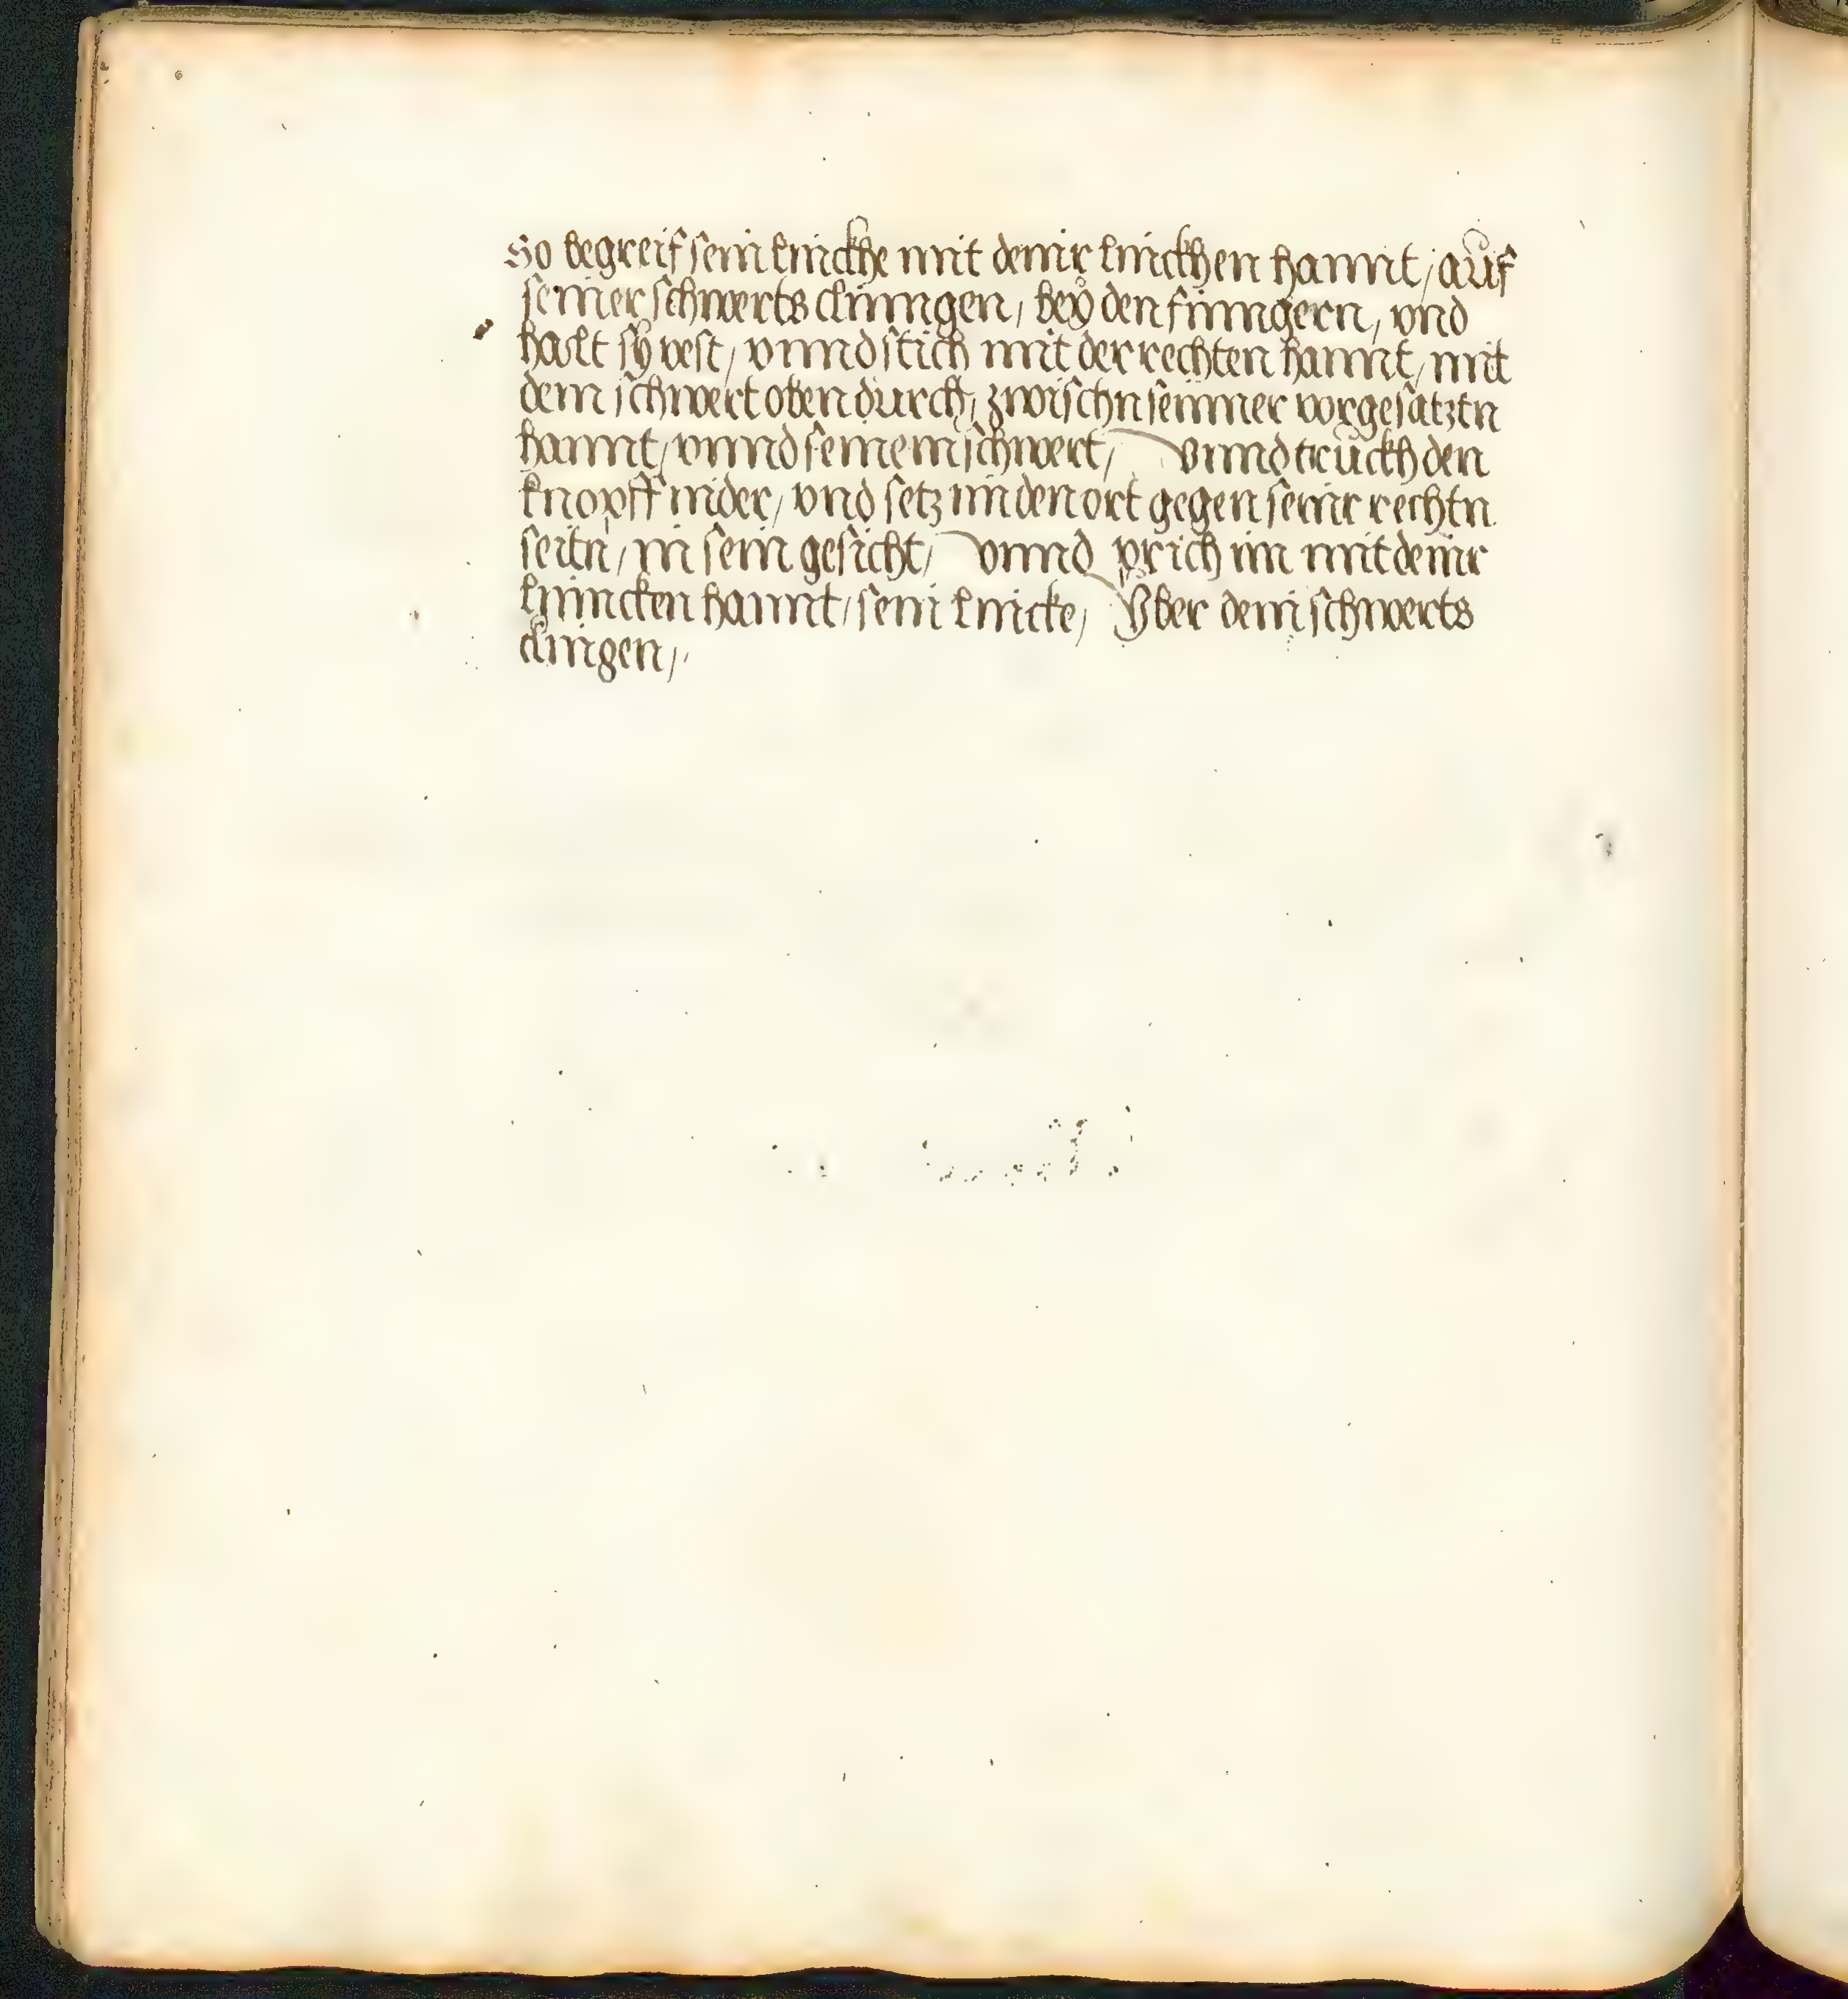 So begreif sein linckhe mit deinr linckhen hannt, auf
seiner schwerts clinngen, bey den finngern, vnd
halt sy vest, vnnd stich mit der rechten hannt, mit
dem schwert oben durch, zwischn seinner vorgesatztn
hannt, vnnd seinem schwert, vnnd truckh den
knopff nider, vnd setz im den ort gegen seinr rechtn
seitn, in sein gesicht, vnnd prich im mit deinr
linncken hannt, sein lincke, Vber dein schwerts
clingen,